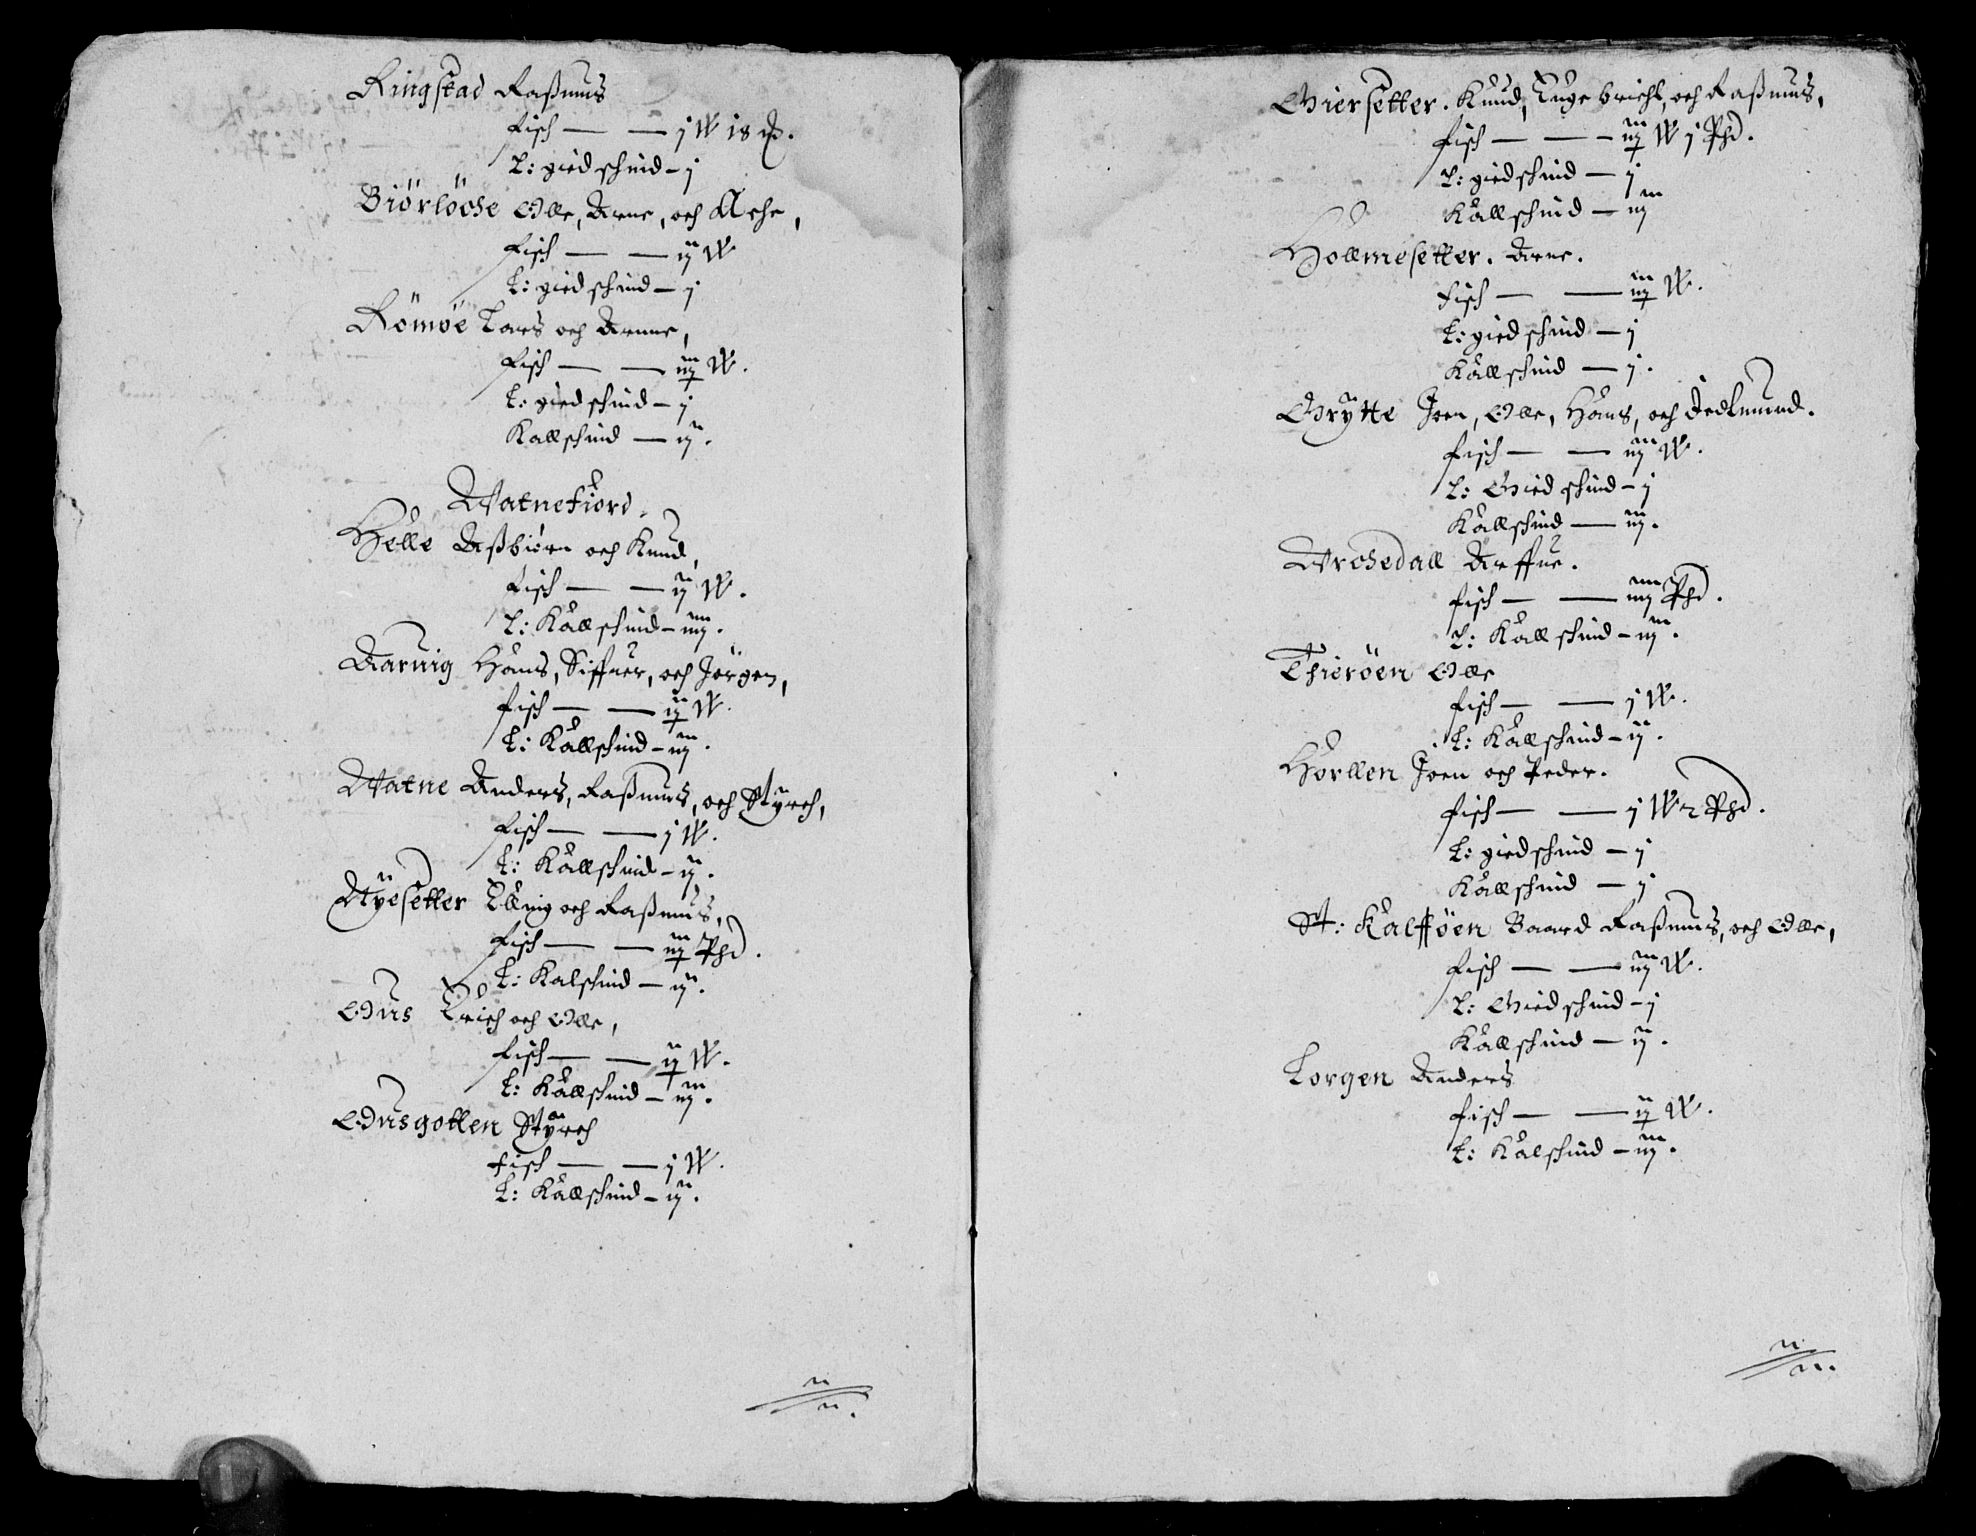 Ringstad Raßmus
fisch — — j W 18 ℔.
L: giedschind – j
Biörlöche Olle, Arne, och Ache,
fisch — — ij W
L: giedschind – j
Römöe Lars och Arnne,
fisch — — iij W.
L: giedschind – j
Kallschind — ij.
Watnefiord.
Helle Aßbiörn och Knud,
fisch — — ij W.
L: Kallschind – iiij.
Aaruig Hans, Siffuer, och Jörgen,
fisch — — ij W.
L: Kallschind – iij.
Watne Anders, Raßmus, och Styrch,
fisch — — j W.
L: Kallschind – ij.
Nyesetter Elling och Raßmus,
fisch — — iij Phd.
L: Kalschind — ij.
Ous Erich och Olle,
fisch — — ij W.
L: Kallschind – iij.
Ousgotten Styrch
fisch — — j W.
L: Kallschind – ij.
Giersetter. Knud, Ingebricht, och Raßmus,
fisch — — – iij W j Phd.
L: giedschind — j
Kallschind — iij
Hollmesetter. Arne.
fisch — — iij W.
L: giedschind — j
Kallschind — j.
Grytte Joen, Olle, Hans, och
fisch — — iij W.
L: Giedschind – j
Kallschind — iij.
Vrchedall Arffue.
fisch — — iiij Phd.
L: Kallschind – iij.
Thieröen Olle
fisch — — j W.
L: Kallschind – ij.
Horllen Joen och Peder.
fisch — — j W 2 Phd.
L: giedschind – j
Kallschind — j
St: Kalföen Baard Raßmus, och Olle,
fisch — — iij W.
L: Giedschind – j
Kallschind — ij.
Lorgen Anders
fisch — — ij W.
L: Kalschind – iij.